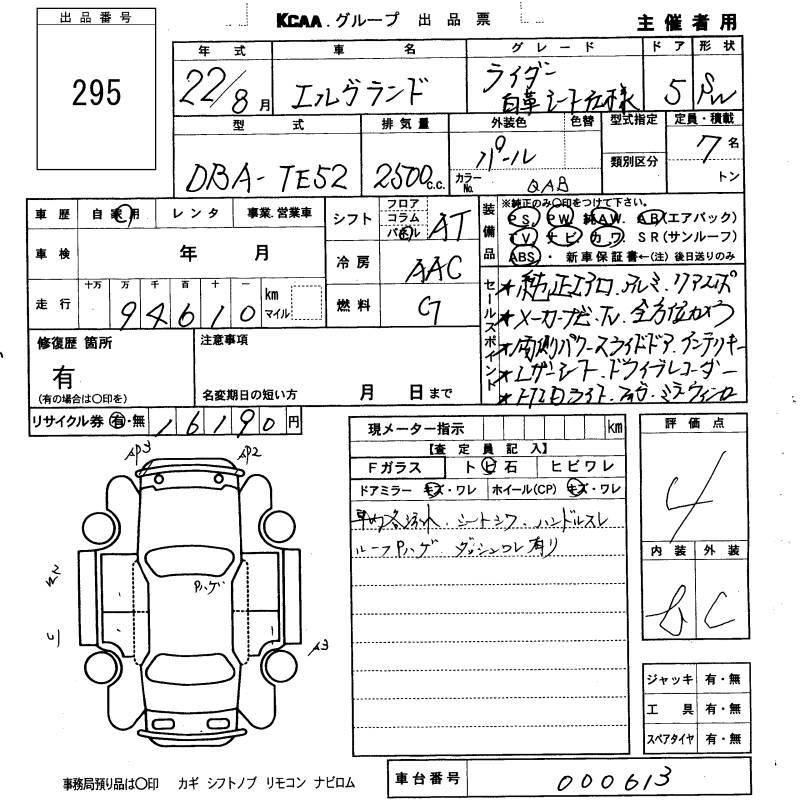 出品番号
295
KCAA.グループ 出品票
主催者用
年式 車名 グレード ドア 形状
22/8月 エルグランド ライダー 5 SW
自革シート仕様
型式 排気量 外装色 色替 型式指定 定員・積載
DBA-TE52 2500c.c. パール 7名
カラーNo. QAB 類別区分 トン
車歴 自家用 レンタ 事業.営業車
シフト フロア コラム AT
車検 年 月
冷房 AAC
走行 十万 万 千 百 十 一 km マイル
94610
燃料 G
装備品
※純正のみ〇印をつけて下さい。
PS. PW 純AW. AB(エアバック)
TV. ナビ. カワ. SR(サンルーフ)
ABS・新車保証書←(注)後日送りのみ
セールスポイント
★純正エアロ.アルミ.リアスポ
★メーカーナビ.TV.全方位カメラ
★両側パワースライドドア.インテリキー
★レザーシート.ドライブレコーダー
★HIDライト.
修復歴 箇所
有
(有の場合は〇印を)
注意事項
名変期日の短い方 月 日まで
リサイクル券 有・無 16190円
現メーター指示 km
【査定員記入】
Fガラス トビ石 ヒビワレ
ドアミラー キズ・ワレ ホイール(CP) キズ・ワレ
シートシワ.ハンドルスレ
ルーフPハゲ ダッシュワレ有り
評価点
4
内装 外装
C
AP3 AP2
Pハゲ
W2
A3
ジャッキ 有・無
工具 有・無
スペアタイヤ 有・無
事務局預り品は〇印 カギ シフトノブ リモコン ナビロム
車台番号 000613